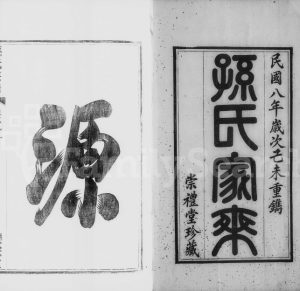 民國八年歲次己未重鐫
孫氏家乘
崇禮堂珍藏
源
FamilySearch